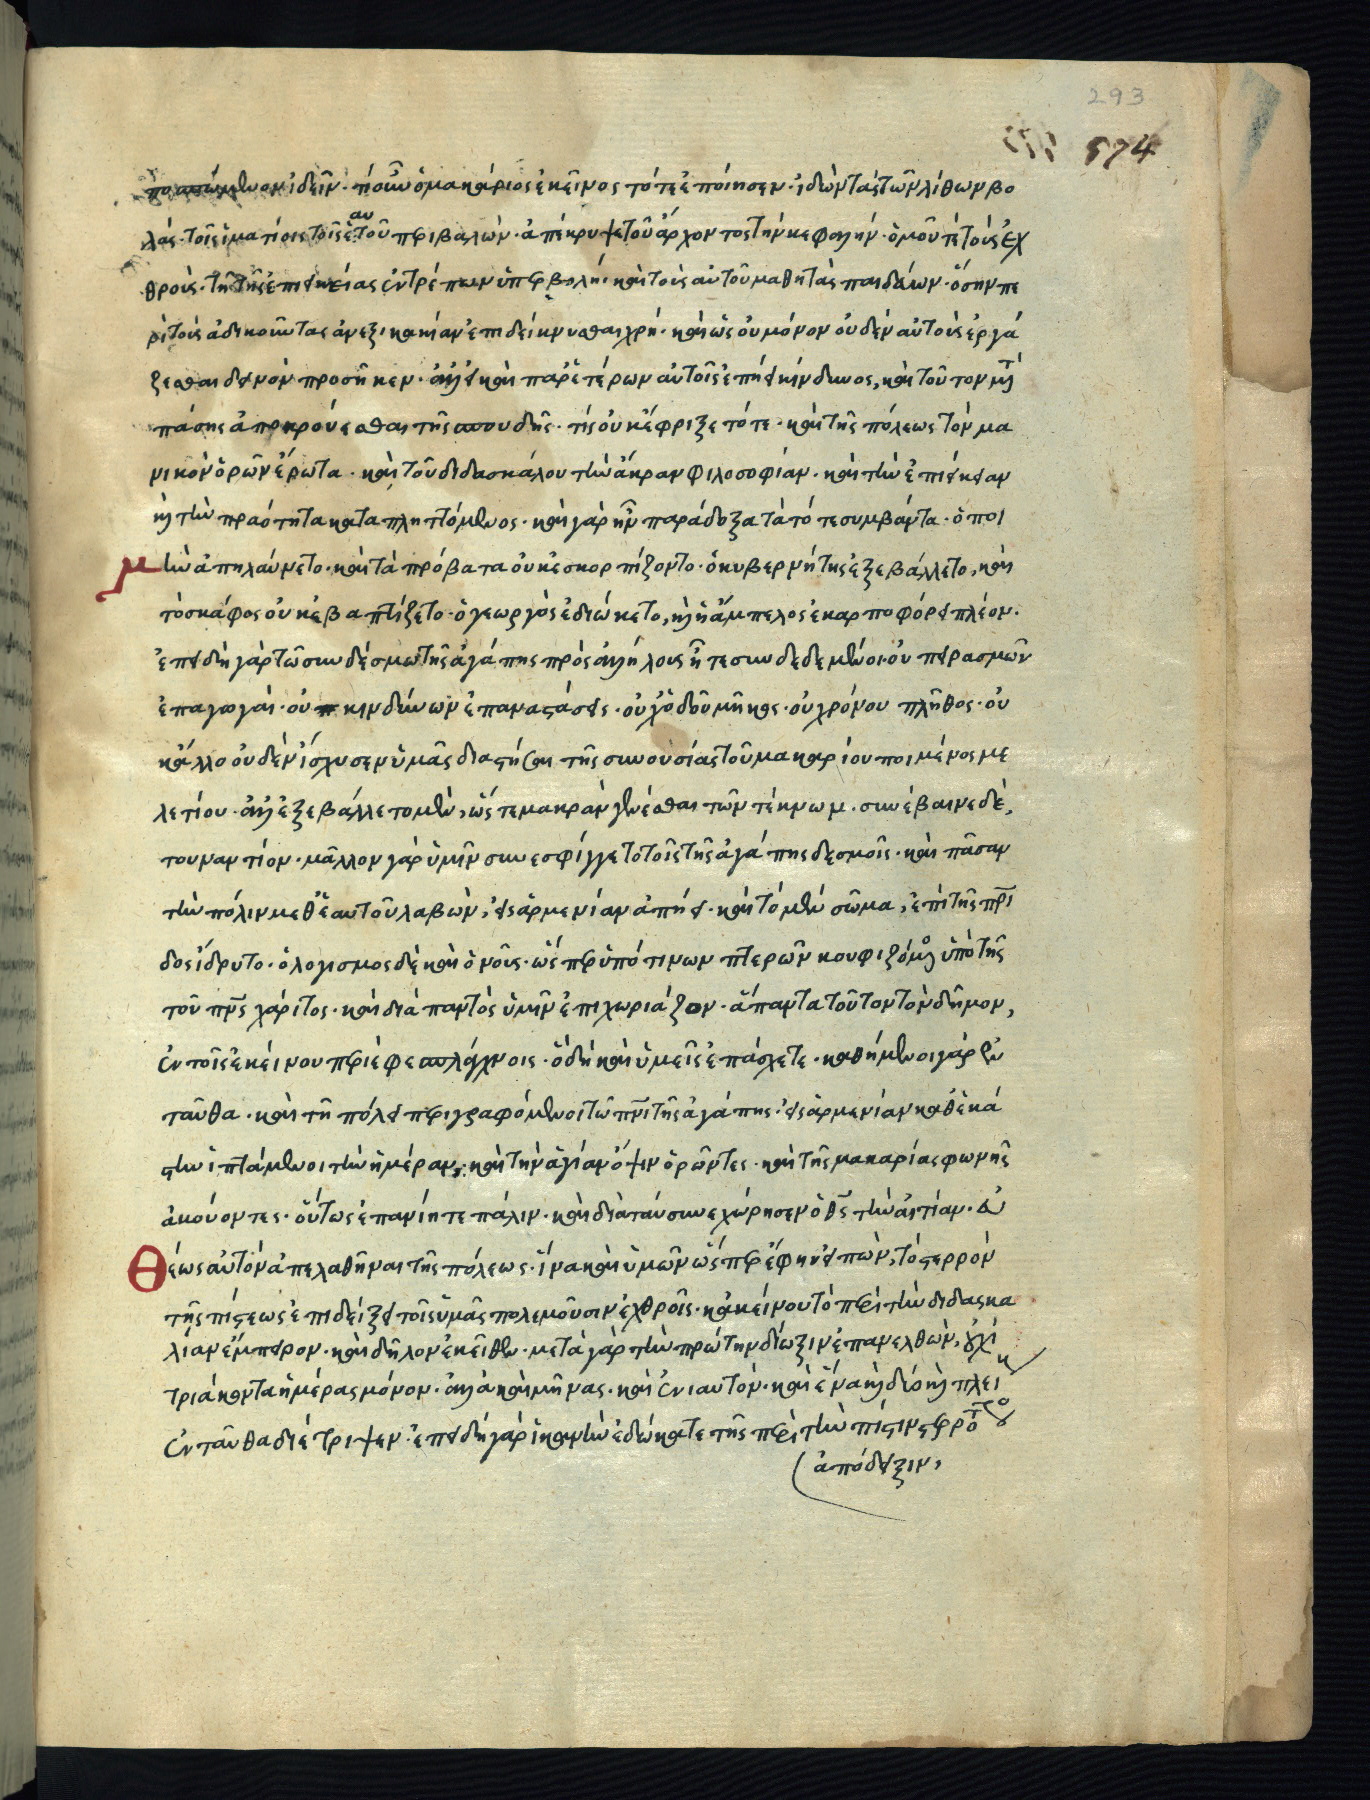 293
574
ἰδεῖν· τί οὖν ὁ μακάριος ἐκεῖνος τότε ἐποίησεν· ἰδὼν τὰς τῶν λίθων βο
λάς· τοῖς ἱματίοις τοῖς ἑαυτοῦ περιβαλὼν· ἀπέκρυψε τοῦ ἄρχοντος τὴν κεφαλήν· ὁμοῦ τὲ τοὺς ἐχ
θροὺς· τῇ τῆς ἐπιεικείας ἐντρέπων ὑπερβολῇ· καὶ τοὺς αὐτοῦ μαθητὰς παιδεύων· ὅσην πε
ρὶ τοὺς ἀδικοῦντας ἀνεξικακίαν ἐπιδείκνυσθαι χρή· καὶ ὡς οὐ μόνον οὐδὲν αὐτοὺς ἐργά
ζεσθαι δεινὸν προσῆκεν· ἀλλ' εἰ καὶ παρ' ἑτέρων αὐτοῖς ἐπήει κίνδυνος, καὶ τοῦτον μετὰ
πάσης ἀποκρούεσθαι τῆς σπουδῆς· τίς οὐκ ἔφριξε τότε· καὶ τῆς πόλεως τὸν μα
νικὸν ὁρῶν ἔρωτα· καὶ τοῦ διδασκάλου τὴν ἄκραν φιλοσοφίαν· καὶ τὴν ἐπιείκειαν
καὶ τὴν πραότητα καταπληττόμενος· καὶ γὰρ ἦν παράδοξα τὰ τότε συμβάντα· ὁ ποι
μὴν ἀπηλαύνετο· καὶ τὰ πρόβατα οὐκ ἐσκορπίζοντο· ὁ κυβερνήτης ἐξεβάλλετο, καὶ
τὸ σκάφος οὐκ ἐβαπτίζετο· ὁ γεωργὸς ἐδιώκετο, καὶ ἡ ἄμπελος ἐκαρποφόρει πλέον·
ἐπειδὴ γὰρ τῶ συνδέσμω τῆς ἀγάπης πρὸς ἀλλήλους ἦτε συνδεδεμένοι· οὐ πειρασμῶν
ἐπαγωγαὶ· οὐ κινδύνων ἐπαναστάσεις· οὐχ ὁδοῦ μῆκος· οὐ χρόνου πλῆθος· οὐ
κ ἄλλο οὐδὲν ἴσχυσεν ὑμᾶς διαστῆσαι τῆς συνουσίας τοῦ μακαρίου ποιμένος με
λετίου· ἀλλ' ἐξεβάλλετο μὲν, ὥστε μακρὰν γενέσθαι τῶν τέκνων· συνέβαινε δὲ,
τουναντίον· μᾶλλον γὰρ ὑμῖν συνεσφίγγετο τοῖς τῆς ἀγάπης δεσμοῖς· καὶ πᾶσαν
τὴν πόλιν μεθ' ἑαυτοῦ λαβὼν, εἰς ἀρμενίαν ἀπῄει· καὶ τὸ μὲν σῶμα, ἐπὶ τῆς πρι
δος ἵδρυτο· ὁ λογισμος δὲ καὶ ὁ νοῦς· ὥσπερ ὑπό τινων πτερῶν κουφιζόμενος ὑπὸ τῆς
τοῦ πνς χάριτος· καὶ διὰ παντὸς ὑμῖν ἐπιχωριάζων· ἅπαντα τοῦτον τὸν δῆμον,
ἐν τοῖς ἐκείνου περιέφε σπλάγχνοις· ὃ δὴ καὶ ὑμεῖς ἐπάσχετε· καθήμενοι γὰρ ἐν
ταῦθα· καὶ τῇ πόλει περιγραφόμενοι τῶ πνι τῆς ἀγάπης· εἰς ἀρμενίαν καθ' ἑκά
στην ἱπτάμενοι τὴν ἡμέραν, καὶ τὴν ἁγίαν ὄψιν ὁρῶντες· καὶ τῆς μακαρίας φωνῆς
ἀκούοντες· οὕτως ἐπανίητε πάλιν· καὶ διὰ ταύ συνεχώρησεν ὁ θς τὴν αἰτίαν· εὐ
θέως αὐτὸν ἀπελαθῆναι τῆς πόλεως· ἵνα καὶ ὑμῶν ὥσπερ ἔφην εἰπὼν, τὸ στερρὸν
τῆς πίστεως ἐπιδείξει τοῖς ὑμᾶς πολεμοῦσιν ἐχθροῖς· κἀκείνου τὸ περὶ τὴν διδασκα
λίαν ἔμπειρον· καὶ δῆλον ἐκεῖθεν· μετὰ γὰρ τὴν πρώτην δίωξιν ἐπανελθὼν, οὐχὶ
τριάκοντα ἡμέρας μόνον· ἀλλὰ καὶ μῆνας· καὶ ἐνιαυτὸν· καὶ ἕνα καὶ δύο καὶ πλεί
ἐνταῦθα διέτριψεν· ἐπειδὴ γὰρ ἱκανὴν ἐδώκατε τῆς περὶ τὴν πίστιν στερρό
ἀπόδειξιν,